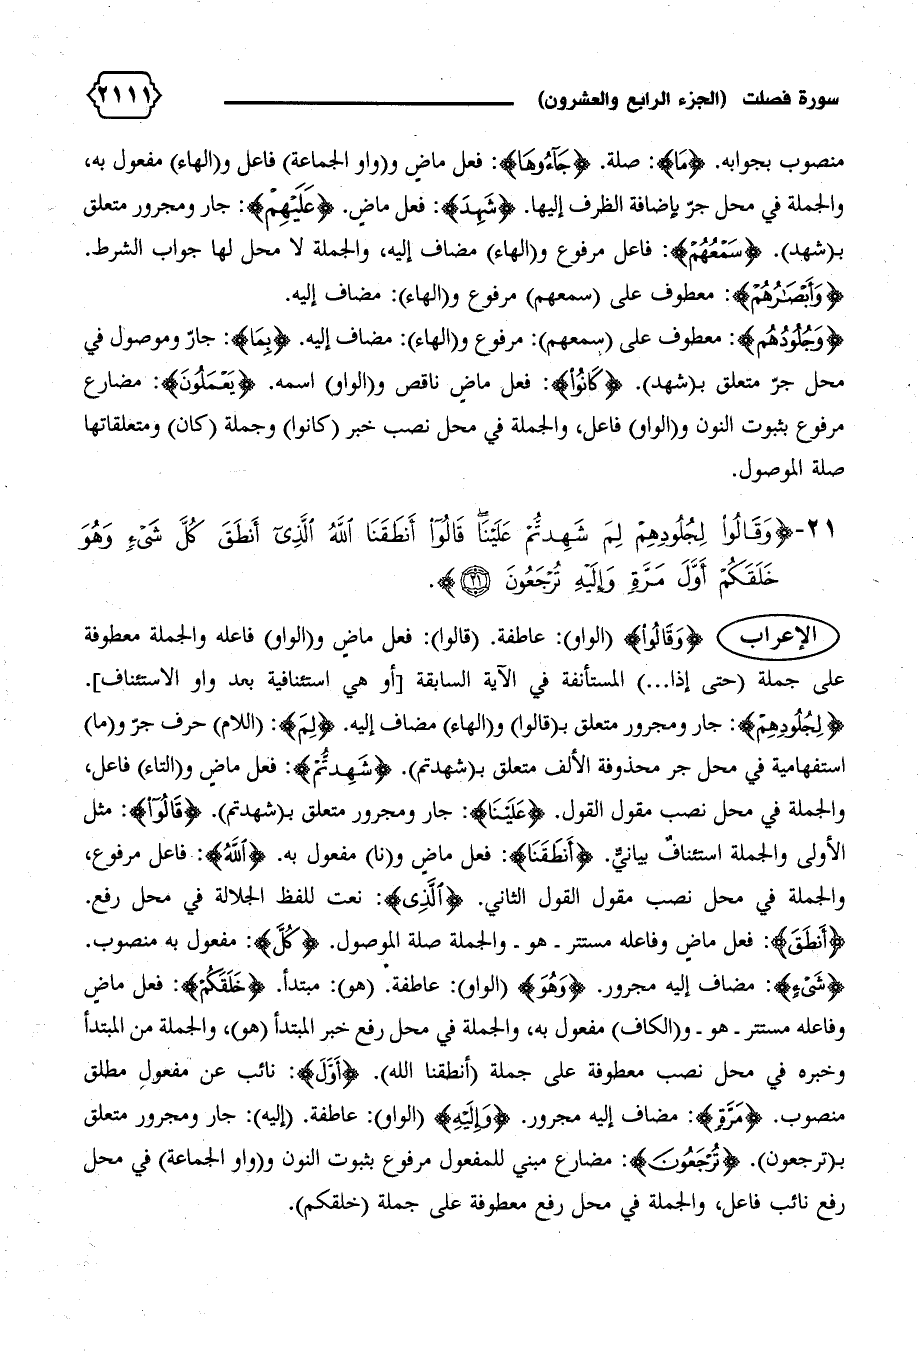 سورة فصلت (الجزء الرابع والعشرون)
٢١١١
منصوب بجوابه. ﴿مَا﴾: صلة. ﴿جَآءُوهَا﴾: فعل ماضٍ و(واو الجماعة) فاعل و(الهاء) مفعول به،
والجملة في محل جرّ بإضافة الظرف إليها. ﴿شَهِدَ﴾: فعل ماضٍ. ﴿عَلَيْهِمْ﴾: جار ومجرور متعلق
بـ(شهد). ﴿سَمْعُهُمْ﴾: فاعل مرفوع و(الهاء) مضاف إليه، والجملة لا محل لها جواب الشرط.
﴿وَأَبْصَٰرُهُمْ﴾: معطوف على (سمعهم) مرفوع و(الهاء): مضاف إليه.
﴿وَجُلُودُهُم﴾: معطوف على (سمعهم): مرفوع و(الهاء): مضاف إليه. ﴿بِمَا﴾: جارّ وموصول في
محل جرّ متعلق بـ(شهد). ﴿كَانُوا۟﴾: فعل ماضٍ ناقص و(الواو) اسمه. ﴿يَعْمَلُونَ﴾: مضارع
مرفوع بثبوت النون و(الواو) فاعل، والجملة في محل نصب خبر (كانوا) وجملة (كان) ومتعلقاتها
صلة الموصول.
٢١- ﴿وَقَالُوا۟ لِجُلُودِهِمْ لِمَ شَهِدتُّمْ عَلَيْنَا ۖ قَالُوٓا۟ أَنطَقَنَا ٱللَّهُ ٱلَّذِىٓ أَنطَقَ كُلَّ شَىْءٍ وَهُوَ
خَلَقَكُمْ أَوَّلَ مَرَّةٍ وَإِلَيْهِ تُرْجَعُونَ ٢١﴾.
الإعراب ﴿وَقَالُوا۟﴾ (الواو): عاطفة. (قالوا): فعل ماضٍ و(الواو) فاعله والجملة معطوفة
على جملة (حتى إذا...) المستأنفة في الآية السابقة [أو هي استئنافية بعد واو الاستئناف].
﴿لِجُلُودِهِمْ﴾: جار ومجرور متعلق بـ(قالوا) و(الهاء) مضاف إليه. ﴿لِمَ﴾: (اللام) حرف جرّ و(ما)
استفهامية في محل جر محذوفة الألف متعلق بـ(شهدتم). ﴿شَهِدتُّمْ﴾: فعل ماضٍ و(التاء) فاعل،
والجملة في محل نصب مقول القول. ﴿عَلَيْنَا﴾: جار ومجرور متعلق بـ(شهدتم). ﴿قَالُوٓا۟﴾: مثل
الأولى والجملة استئنافٌ بيانيٌّ. ﴿أَنطَقَنَا﴾: فعل ماضٍ و(نا) مفعول به. ﴿ٱللَّهُ﴾: فاعل مرفوع،
والجملة في محل نصب مقول القول الثاني. ﴿ٱلَّذِى﴾: نعت للفظ الجلالة في محل رفع.
﴿أَنطَقَ﴾: فعل ماضٍ وفاعله مستتر ـ هو ـ والجملة صلة الموصول. ﴿كُلَّ﴾: مفعول به منصوب.
﴿شَىْءٍ﴾: مضاف إليه مجرور. ﴿وَهُوَ﴾ (الواو): عاطفة. (هو): مبتدأ. ﴿خَلَقَكُمْ﴾: فعل ماضٍ
وفاعله مستتر ـ هو ـ و(الكاف) مفعول به، والجملة في محل رفع خبر المبتدأ (هو)، والجملة من المبتدأ
وخبره في محل نصب معطوفة على جملة (أنطقنا الله). ﴿أَوَّلَ﴾: نائب عن مفعولٍ مطلق
منصوب. ﴿مَرَّةٍ﴾: مضاف إليه مجرور. ﴿وَإِلَيْهِ﴾ (الواو): عاطفة. (إليه): جار ومجرور متعلق
بـ(ترجعون). ﴿تُرْجَعُونَ﴾: مضارع مبني للمفعول مرفوع بثبوت النون و(واو الجماعة) في محل
رفع نائب فاعل، والجملة في محل رفع معطوفة على جملة (خلقكم).